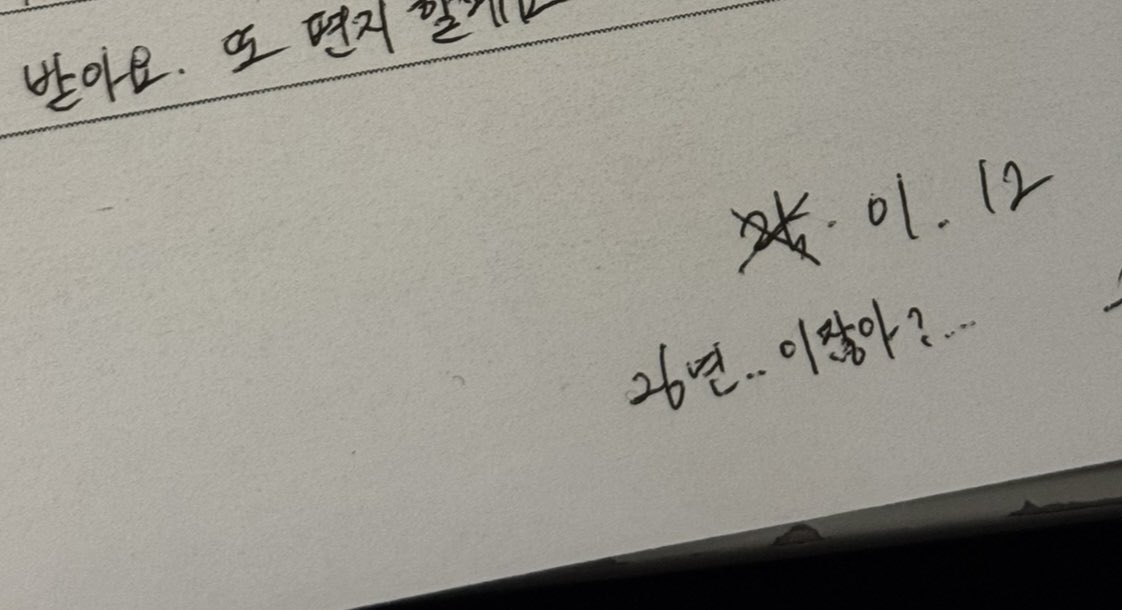 받아요. 또 편지 할게요
. 01. 12
26년.. 이잖아?...